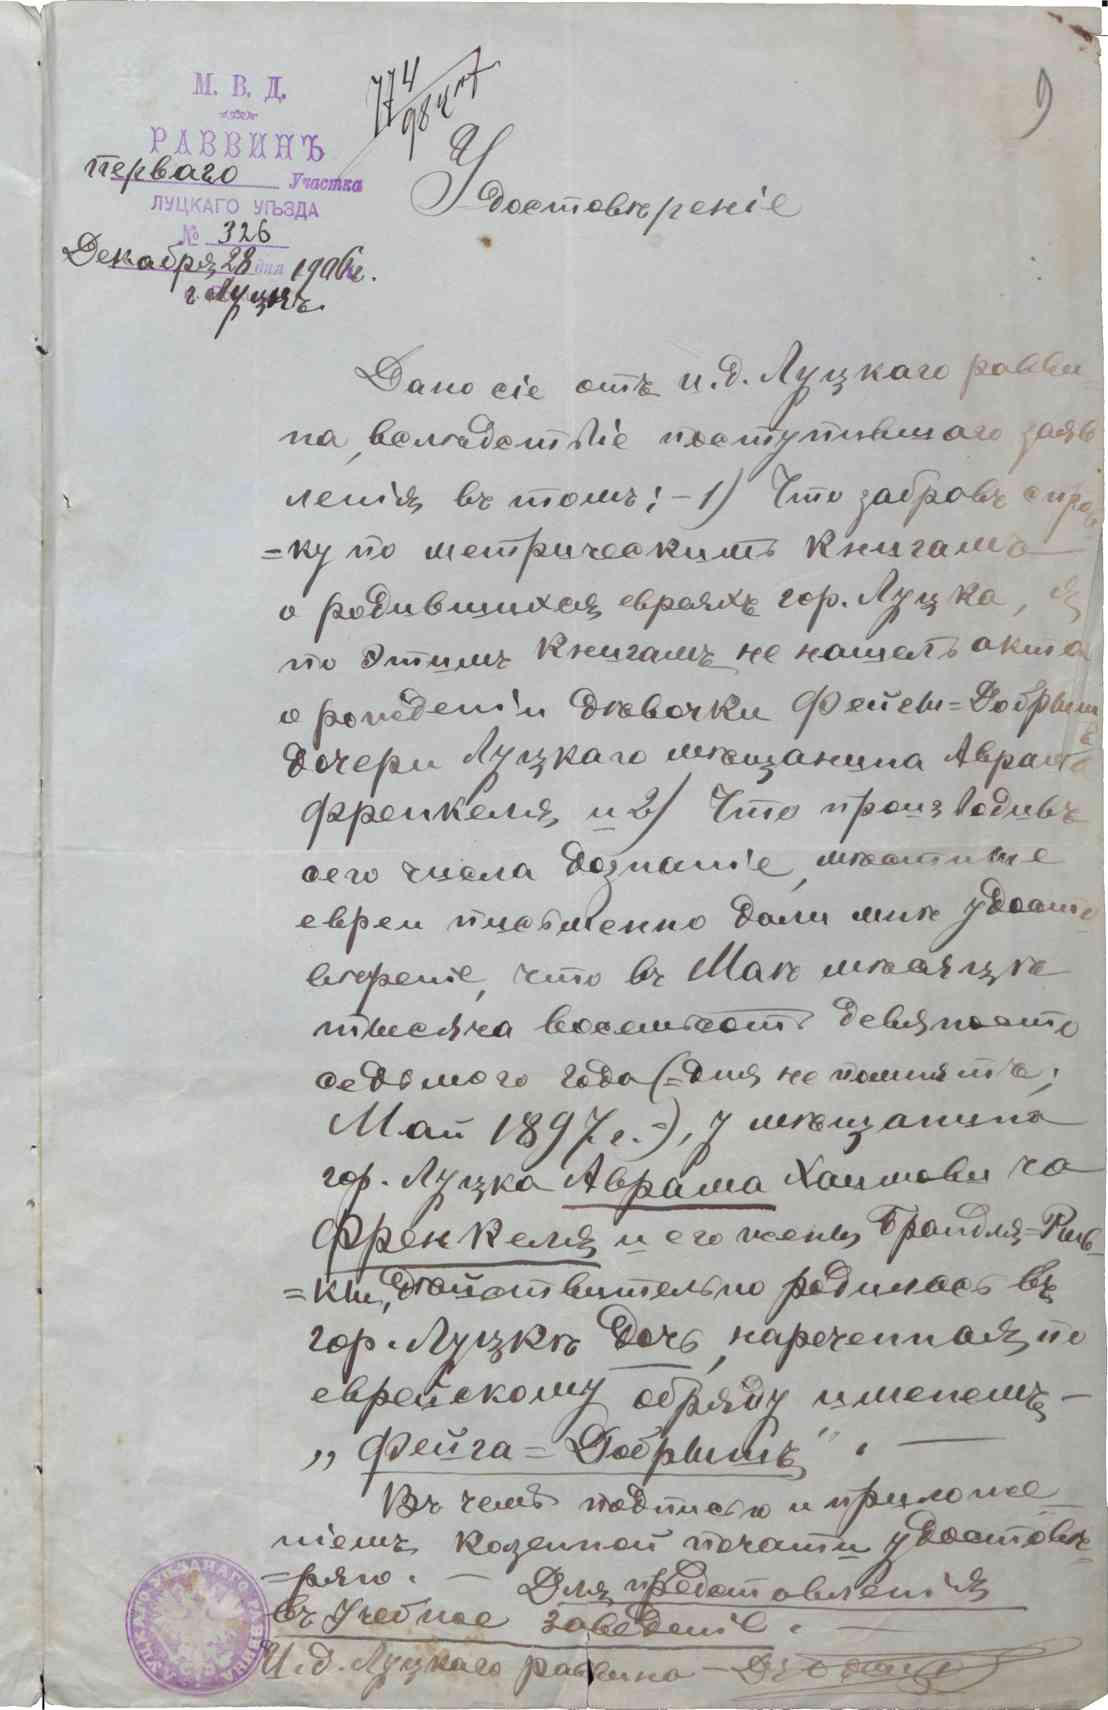 М. В. Д.
РАВВИНЪ
перваго Участка
ЛУЦКАГО УѢЗДА
№ 326
Декабря 28 дня 1906 г.
г. Луцкъ.
774
9
Удостовѣреніе
Дано сіе отъ и. д. Луцкаго равви-
на, вслѣдствіе поступившаго заяв
ленія въ томъ: – 1) Что забравъ справ
=ку по метрическимъ книгамъ
о родившихся евреяхъ гор. Луцка, я
по этимъ книгамъ не нашелъ акта
о рожденіи дѣвочки Фейги=Добрышъ
дочери Луцкаго мѣщанина Аврама
Френкеля и 2) Что производивъ
сего числа дознаніе, мѣстные
евреи письменно дали мнѣ удосто
вѣреніе, что въ Маѣ мѣсяцѣ
тысяча восемьсотъ девяносто
седьмого года (=дня не помнятъ;
Май 1897 г.=), у мѣщанина
гор. Луцка Аврама Хаимовича
Френкеля и его жены Брандля=Рив-
=ки, дѣйствительно родилась въ
гор. Луцкѣ дочь, нареченная по
еврейскому обряду именемъ –
„Фейга=Добрышъ“. —
Въ чемъ подписью и приложе
ніемъ казенной печати удостовѣ=
=ряю. – Для представленія
въ учебное заведеніе. —
И. д. Луцкаго раввина –